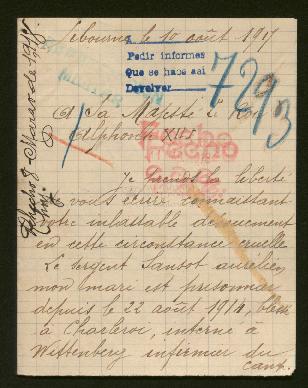 Libourne, le 10 août 1917
A
Pedir informes
Que se hace así
Devolver
7293
A Sa Majesté le Roi
Alphonse XIII
Je prends la liberté
de vous écrire connaissant
votre inlassable dévouement
en cette circonstance cruelle
Le sergent Sansot aurélien
mon mari est prisonnier
depuis le 22 août 1914, blessé
à Charleroi, interné à
Wittenberg infirmier du
camp.
8 Marzo de 1918